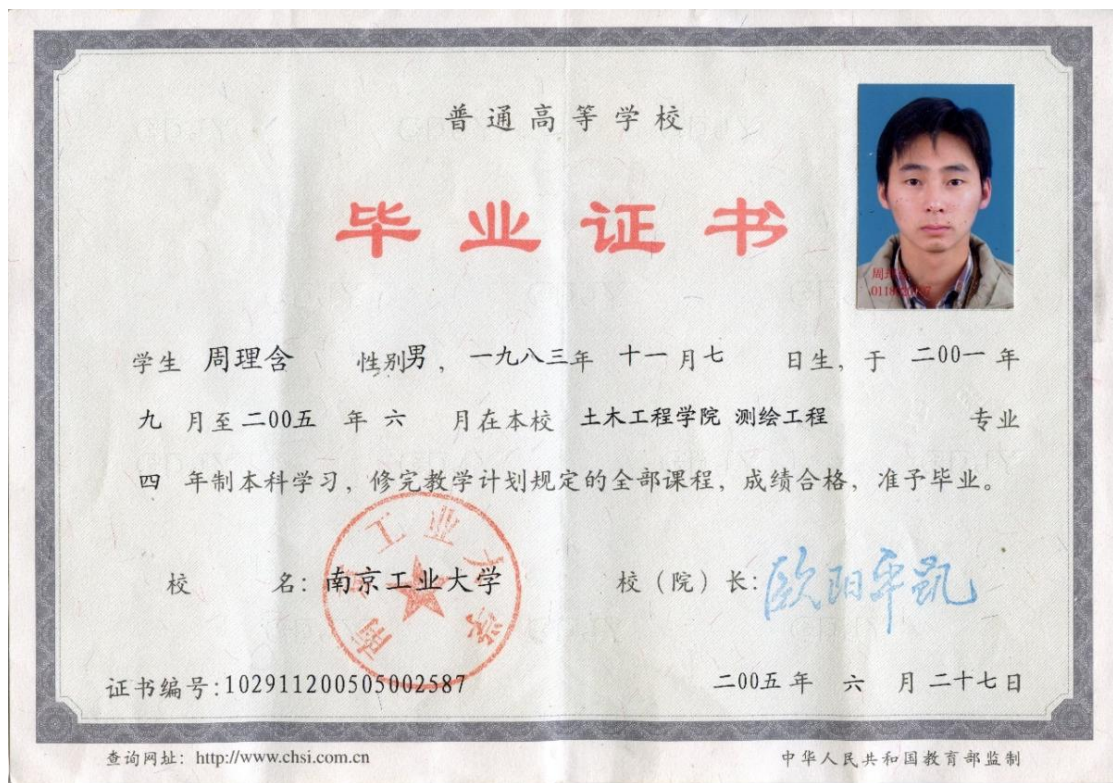 普通高等学校
毕业证书
学生 周理含 性别男，一九八三年 十一月七 日生，于 二00一 年
九 月至二00五 年 六 月在本校 土木工程学院 测绘工程 专业
四 年制本科学习，修完教学计划规定的全部课程，成绩合格，准予毕业。
校 名：南京工业大学 校（院）长：欧阳平凯
南京工业大学
证书编号:102911200505002587 二00五 年 六 月 二十七日
查询网址：http://www.chsi.com.cn 中华人民共和国教育部监制